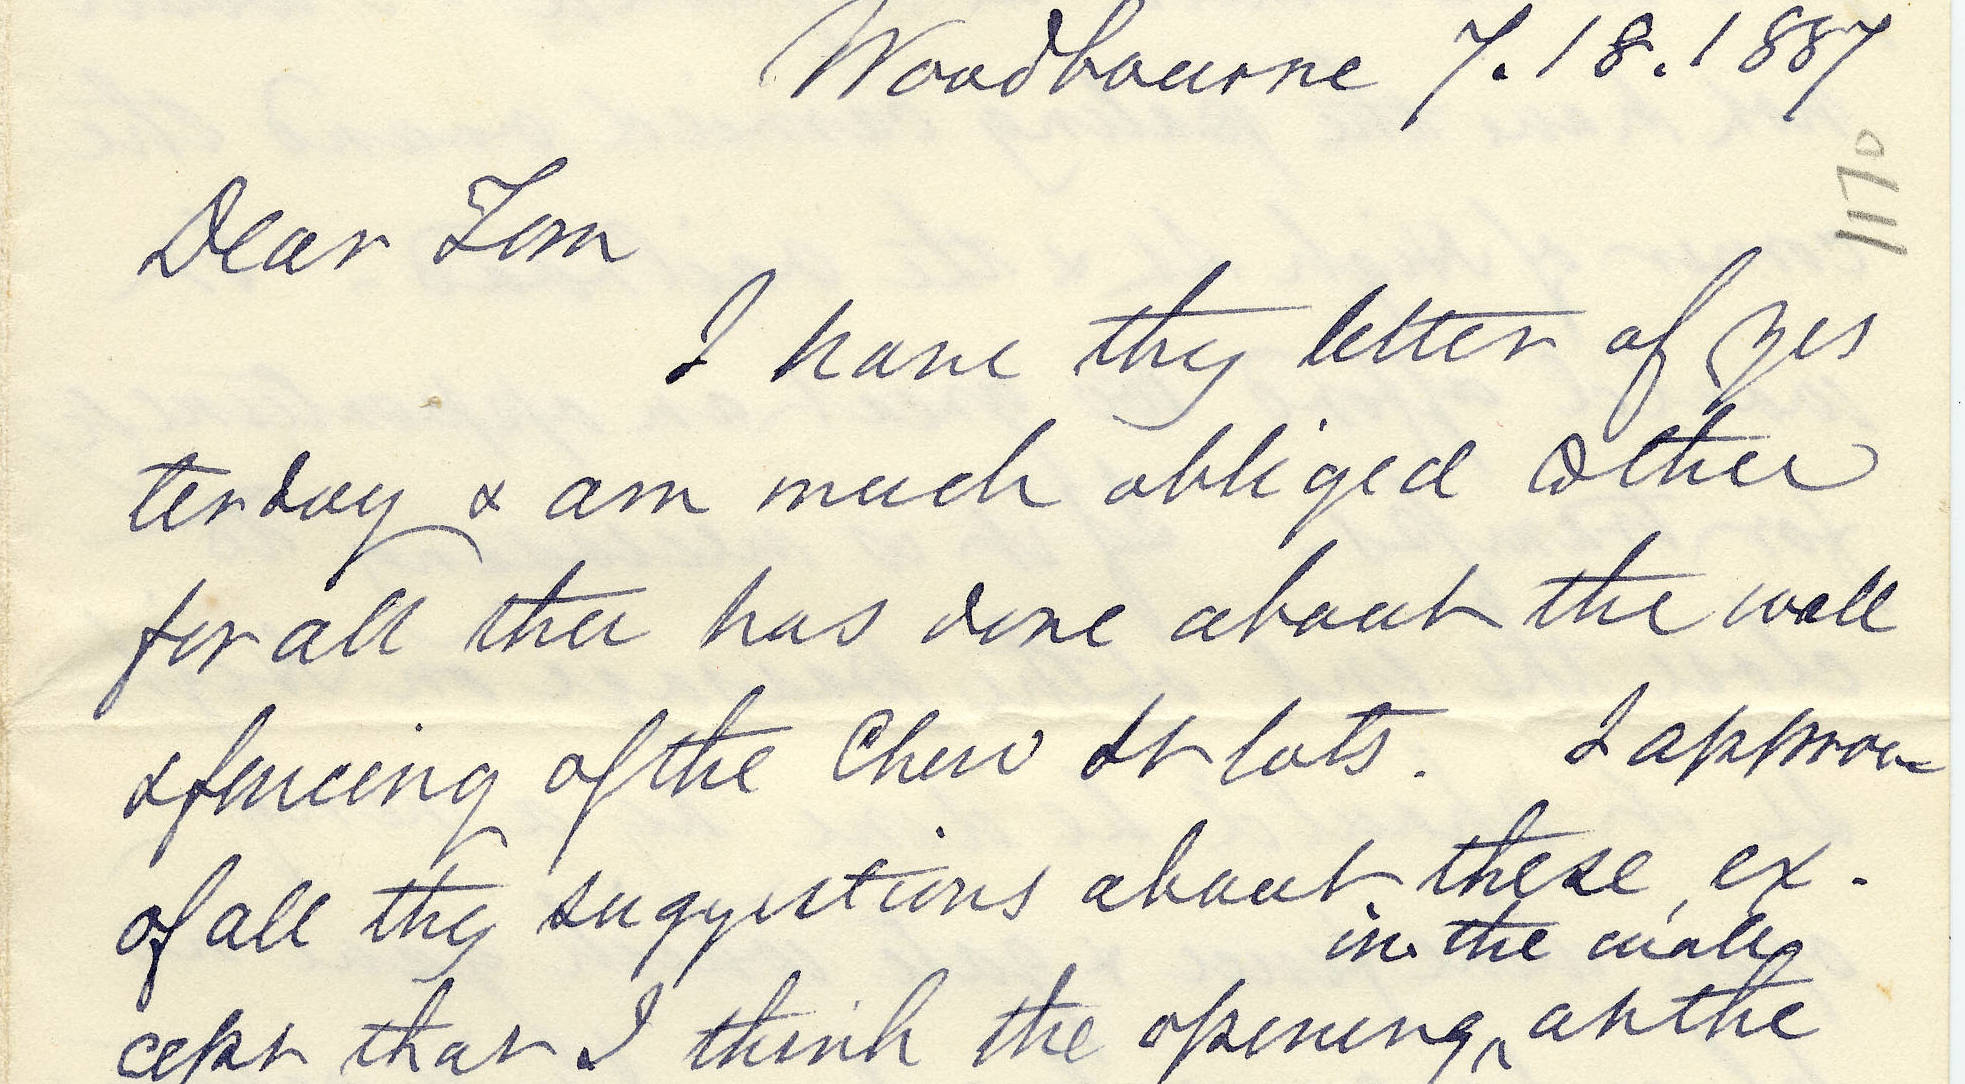 Woodbourne 7.18.1887
1170
Dear Tom
I have thy letter of yes
terday & am much obliged to thee
for all thee has done about the wall
& fencing of the Chew St lots. I approve
of all thy suggestions about these, ex-
in the wall
cept that I think the opening ^ at the